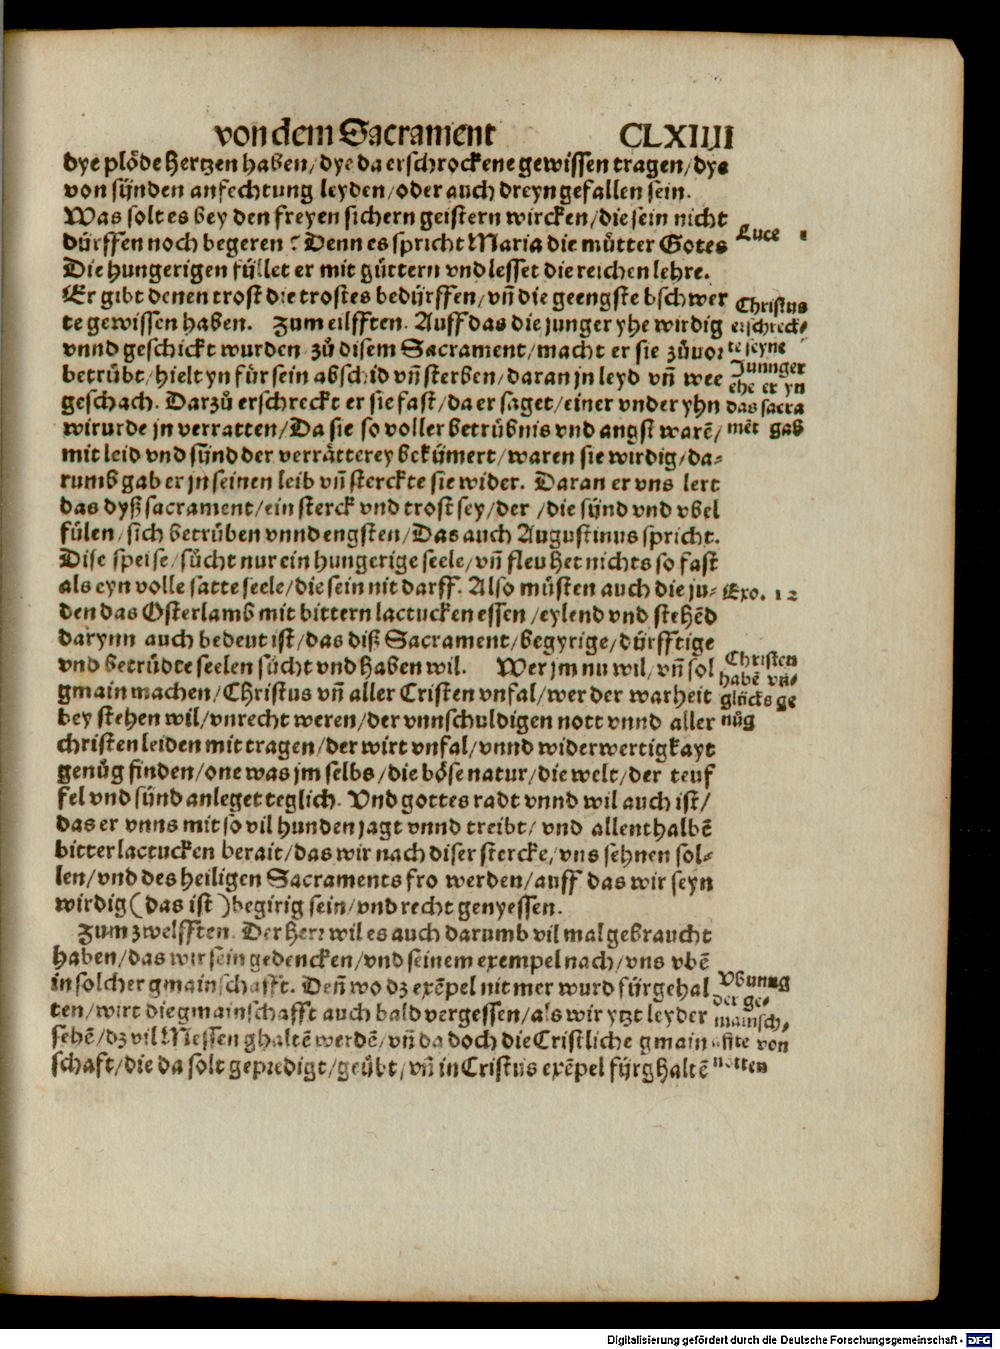 von dem Sacrament CLXIIII
dye plöde Hertzen haben/dye da erschrockene gewissen tragen/dye
von sünden anfechtung leyden/oder auch dreyn gefallen sein.
Was solt es bey den freyen sichern geistern wircken/die sein nicht
dürffen noch begeren? Denn es spricht Maria die mütter Gotes
Die hungerigen füllet er mit güttern vnd lesset die reichen lehre.
Er gibt denen trost die trostes bedürffen/vñ die geengste bschwer
te gewissen haben. Zum eilfften. Auff das die junger yhe wirdig
vnnd geschickt wurden zů disem Sacrament/macht er sie zůuor
betrübt/hielt yn für sein abschid vñ sterben/daran jn leyd vñ wee
geschach. Darzů erschreckt er sie fast/da er saget/einer vnder yhn
wirurde jn verratten/Da sie so voller betrübnis vnd angst warē/
mit leid vnd sünd der verrätterey bekümert/waren sie wirdig/da-
rumb gab er jn seinen leib vñ sterckte sie wider. Daran er vns lert
das dyß sacrament/ein sterck vnd trost sey/der/die sünd vnd vbel
fülen/sich betrüben vnnd engsten/Das auch Augustinus spricht.
Dise speise/sücht nur ein hungerige seele/vñ fleuhet nichts so fast
als eyn volle satte seele/die sein nit darff. Also müsten auch die ju-
den das Osterlamb mit bittern lactucken essen/eylend vnd stehēd
darynn auch bedeut ist/das diß Sacrament/begyrige/dürfftige
vnd betrübte seelen sücht vnd haben wil. Wer jm nu wil/vñ sol
gmain machen/Christus vñ aller Cristen vnfal/wer der warheit
bey stehen wil/vnrecht weren/der vnnschuldigen nott vnnd aller
christen leiden mit tragen/der wirt vnfal/vnnd widerwertigkayt
genůg finden/one was jm selbs/die böse natur/die welt/der teuf
fel vnd sünd anleget teglich. Vnd gottes radt vnnd wil auch ist/
das er vnns mit so vil hunden jagt vnnd treibt/vnd allenthalbē
bitter lactucken berait/das wir nach diser stercke/vns sehnen sol-
len/vnd des heiligen Sacraments fro werden/auff das wir seyn
wirdig (das ist) begirig sein/vnd recht genyessen.
Zum zwelfften. Der Herr wil es auch darumb vil mal gebraucht
haben/das wir sein gedencken/vnd seinem exempel nach/vns vbē
in solcher gmainschafft. Deñ wo dz exēpel nit mer wurd fürgehal
ten/wirt die gmainschafft auch bald vergessen/als wir ytzt leyder
sehē/dz vil Messen ghaltē werdē/vñ da doch die Cristliche gmain
schaft/die da solt gepredigt/geübt/vñ in Cristus exēpel fürghaltē
Luce 1
Christus
erschreck-
te seyne
Junnger
ehe er yn
das sacra
mēt gab
Exo. 12
Christen
habē vn-
glücks ge
nůg
Vbunng
der ge-
mainsch-
affte von
Digitalisierung gefördert durch die Deutsche Forschungsgemeinschaft - DFG